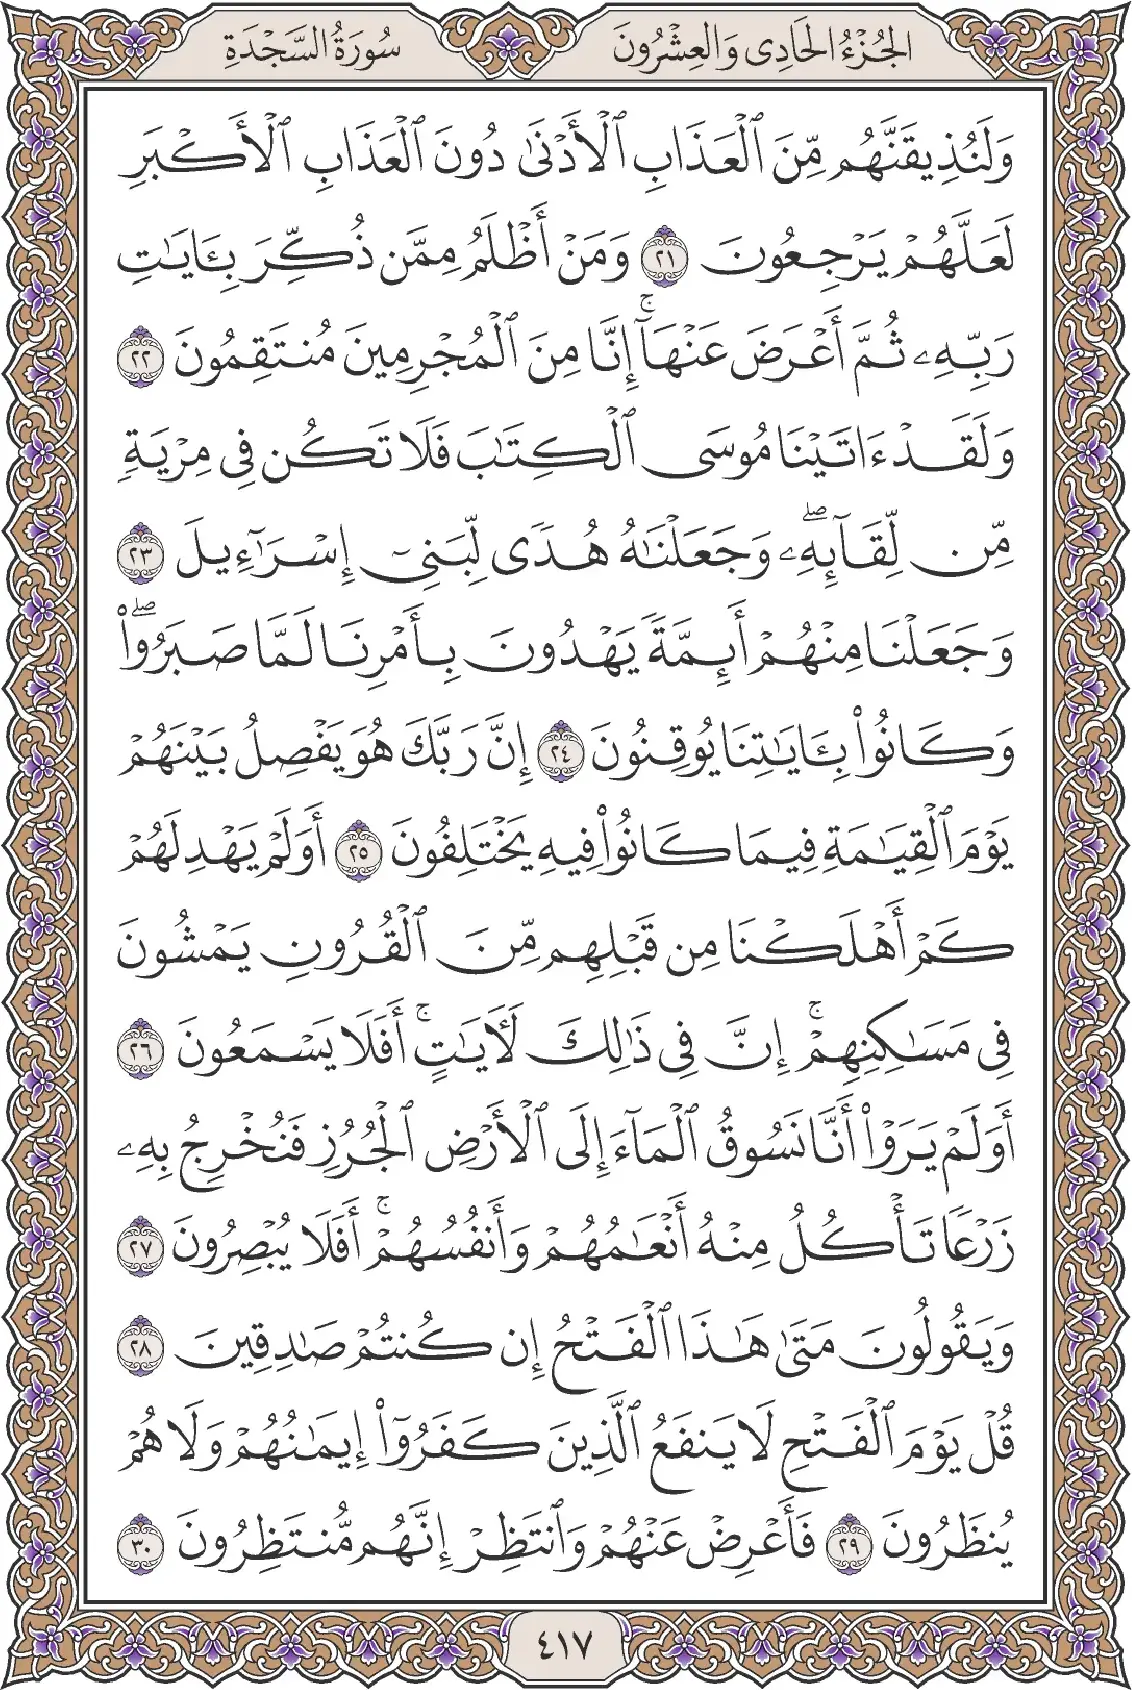 الجُزْءُ الحَادِى وَالعِشْرُونَ سُورَةُ السَّجْدَةِ
وَلَنُذِيقَنَّهُم مِّنَ ٱلْعَذَابِ ٱلْأَدْنَىٰ دُونَ ٱلْعَذَابِ ٱلْأَكْبَرِ
لَعَلَّهُمْ يَرْجِعُونَ ٢١ وَمَنْ أَظْلَمُ مِمَّن ذُكِّرَ بِـَٔايَـٰتِ
رَبِّهِۦ ثُمَّ أَعْرَضَ عَنْهَآ ۚ إِنَّا مِنَ ٱلْمُجْرِمِينَ مُنتَقِمُونَ ٢٢
وَلَقَدْ ءَاتَيْنَا مُوسَى ٱلْكِتَـٰبَ فَلَا تَكُن فِى مِرْيَةٍ
مِّن لِّقَآئِهِۦ ۖ وَجَعَلْنَـٰهُ هُدًى لِّبَنِىٓ إِسْرَٰٓءِيلَ ٢٣
وَجَعَلْنَا مِنْهُمْ أَئِمَّةً يَهْدُونَ بِأَمْرِنَا لَمَّا صَبَرُوا۟ ۖ
وَكَانُوا۟ بِـَٔايَـٰتِنَا يُوقِنُونَ ٢٤ إِنَّ رَبَّكَ هُوَ يَفْصِلُ بَيْنَهُمْ
يَوْمَ ٱلْقِيَـٰمَةِ فِيمَا كَانُوا۟ فِيهِ يَخْتَلِفُونَ ٢٥ أَوَلَمْ يَهْدِ لَهُمْ
كَمْ أَهْلَكْنَا مِن قَبْلِهِم مِّنَ ٱلْقُرُونِ يَمْشُونَ
فِى مَسَـٰكِنِهِمْ ۚ إِنَّ فِى ذَٰلِكَ لَـَٔايَـٰتٍ ۚ أَفَلَا يَسْمَعُونَ ٢٦
أَوَلَمْ يَرَوْا۟ أَنَّا نَسُوقُ ٱلْمَآءَ إِلَى ٱلْأَرْضِ ٱلْجُرُزِ فَنُخْرِجُ بِهِۦ
زَرْعًا تَأْكُلُ مِنْهُ أَنْعَـٰمُهُمْ وَأَنفُسُهُمْ ۚ أَفَلَا يُبْصِرُونَ ٢٧
وَيَقُولُونَ مَتَىٰ هَـٰذَا ٱلْفَتْحُ إِن كُنتُمْ صَـٰدِقِينَ ٢٨
قُلْ يَوْمَ ٱلْفَتْحِ لَا يَنفَعُ ٱلَّذِينَ كَفَرُوٓا۟ إِيمَـٰنُهُمْ وَلَا هُمْ
يُنظَرُونَ ٢٩ فَأَعْرِضْ عَنْهُمْ وَٱنتَظِرْ إِنَّهُم مُّنتَظِرُونَ ٣٠
٤١٧